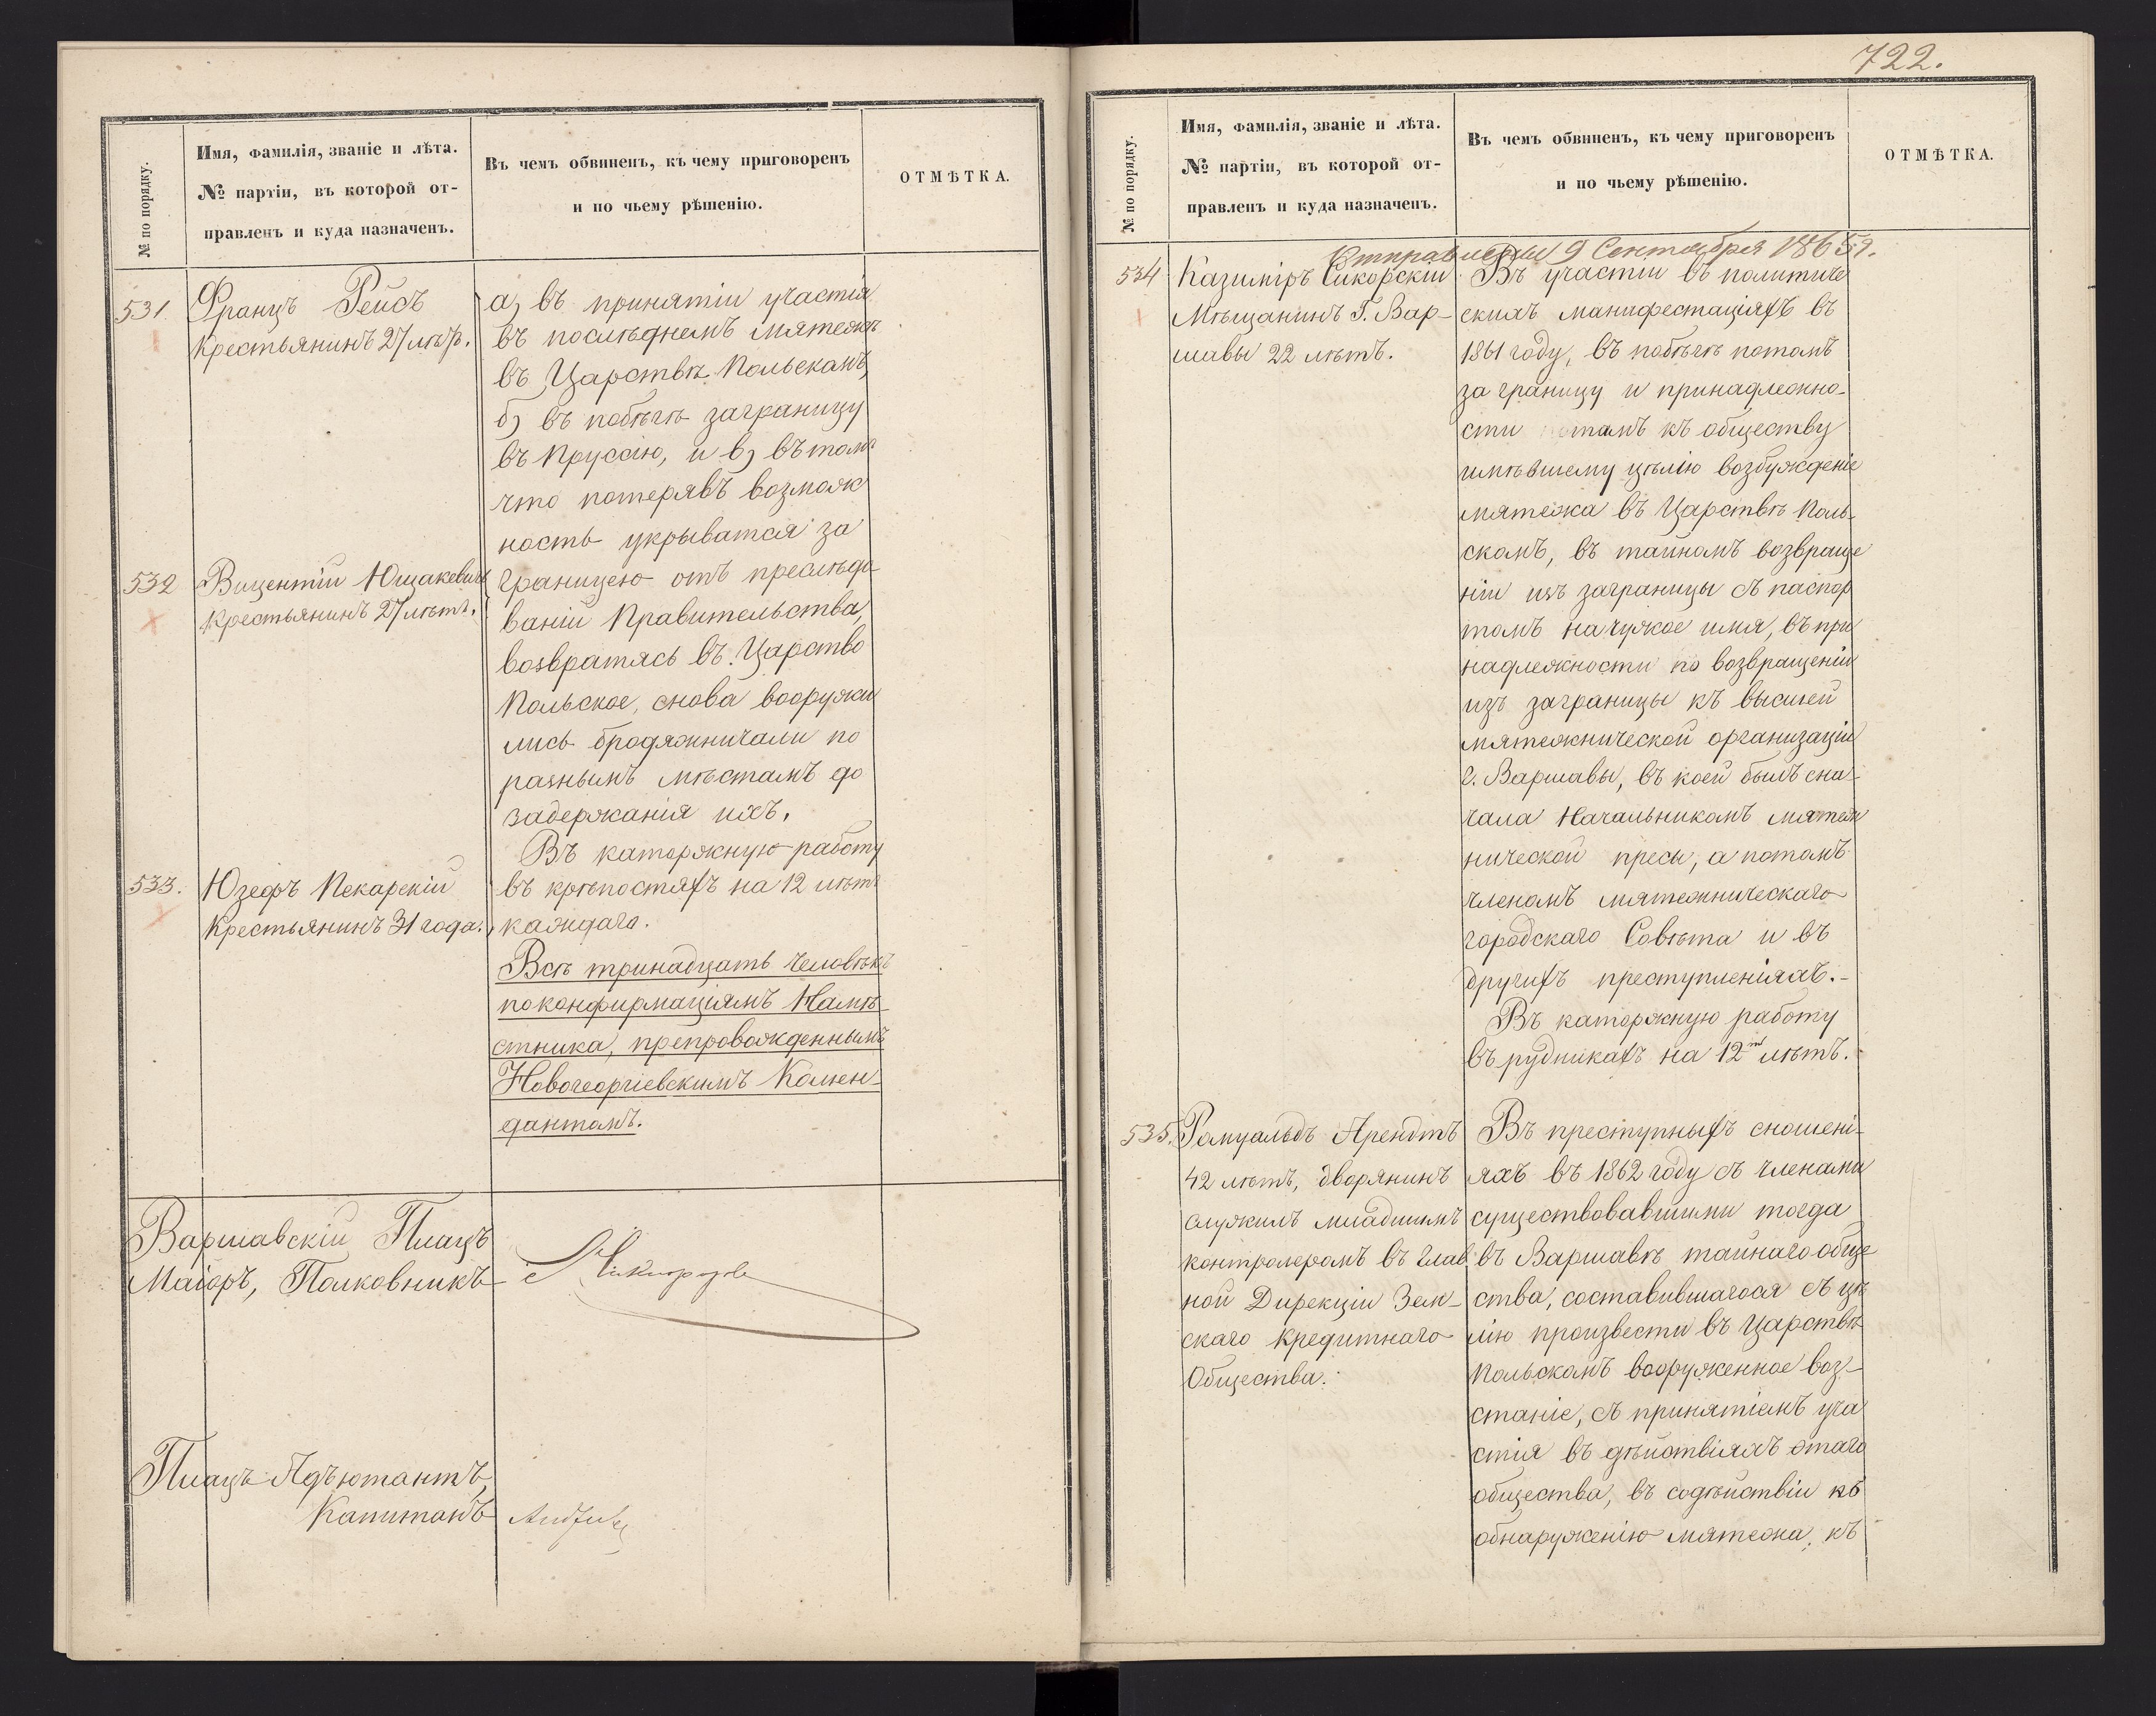 № по порядку.
Имя, фамилія, званіе и лѣта.
№ партіи, въ которой от-
правленъ и куда назначенъ.
Въ чемъ обвиненъ, къ чему приговоренъ
и по чьему рѣшенію.
ОТМѢТКА.
531.
Францъ Рейсъ
Крестьянинъ 27 лѣтъ.
532
Вицентій Ющакевичъ
Крестьянинъ 27 лѣтъ.
533.
Юзефъ Пекарскій
Крестьянинъ 31 года.
а) въ принятіи участія
въ послѣднемъ мятежѣ
въ Царствѣ Польскомъ,
б) въ побѣгѣ заграницу
въ Пруссію, и в) въ томъ
что потерявъ возмож
ность укрыватся за
границею отъ преслѣдо
ваній Правительства,
возвратясь въ Царство
Польское, снова вооружи
лись бродяжничали по
разнымъ мѣстамъ до
задержанія ихъ.
Въ каторжную работу
въ крѣпостяхъ на 12 лѣтъ
каждаго.
Всѣ тринадцать человѣкъ
по конфирмаціямъ Намѣ
стника, препровожденнымъ
Новогеоргіевскимъ Комен-
дантомъ.
Варшавскій Плацъ
Маіоръ, Полковникъ
Плацъ-Адъютантъ,
Капитанъ
722.
№ по порядку.
Имя, фамилія, званіе и лѣта.
№ партіи, въ которой от-
правленъ и куда назначенъ.
Въ чемъ обвиненъ, къ чему приговоренъ
и по чьему рѣшенію.
ОТМѢТКА.
Отправлены 9 Сентября 1865 г.
534
Казиміръ Сикорскій
Мѣщанинъ Г. Вар-
шавы 22 лѣтъ.
Въ участіи въ политиче
скихъ манифестаціяхъ въ
1861 году, въ побѣгѣ потомъ
за границу и принадлежно-
сти тамъ къ обществу
имѣвшему цѣлію возбужденіе
мятежа въ Царствѣ Поль-
скомъ, въ тайномъ возвраще
ніи изъ заграницы съ паспор
томъ на чужое имя, въ при
надлежности по возвращеніи
изъ заграницы къ высшей
мятежнической организаціи
г. Варшавы, въ коей былъ сна-
чала Начальникомъ мятеж
нической пресы, а потомъ
членомъ мятежническаго
городскаго Совѣта и въ
другихъ преступленіяхъ.-
Въ каторжную работу
въ рудникахъ на 12ть лѣтъ.
535.
Ромуальдъ Арендтъ
42 лѣтъ, дворянинъ
служилъ младшимъ
контролеромъ въ Глав
ной Дирекціи Зем-
скаго Кредитнаго
Общества.
Въ преступныхъ сношені-
яхъ въ 1862 году съ членами
существовавшими тогда
въ Варшавѣ тайнаго обще
ства, составившагося съ цѣ
лію произвести въ Царствѣ
Польскомъ вооруженное воз-
станіе, съ принятіемъ уча
стія въ дѣйствіяхъ этаго
общества, въ содѣйствіи къ
обнаруженію мятежа, къ